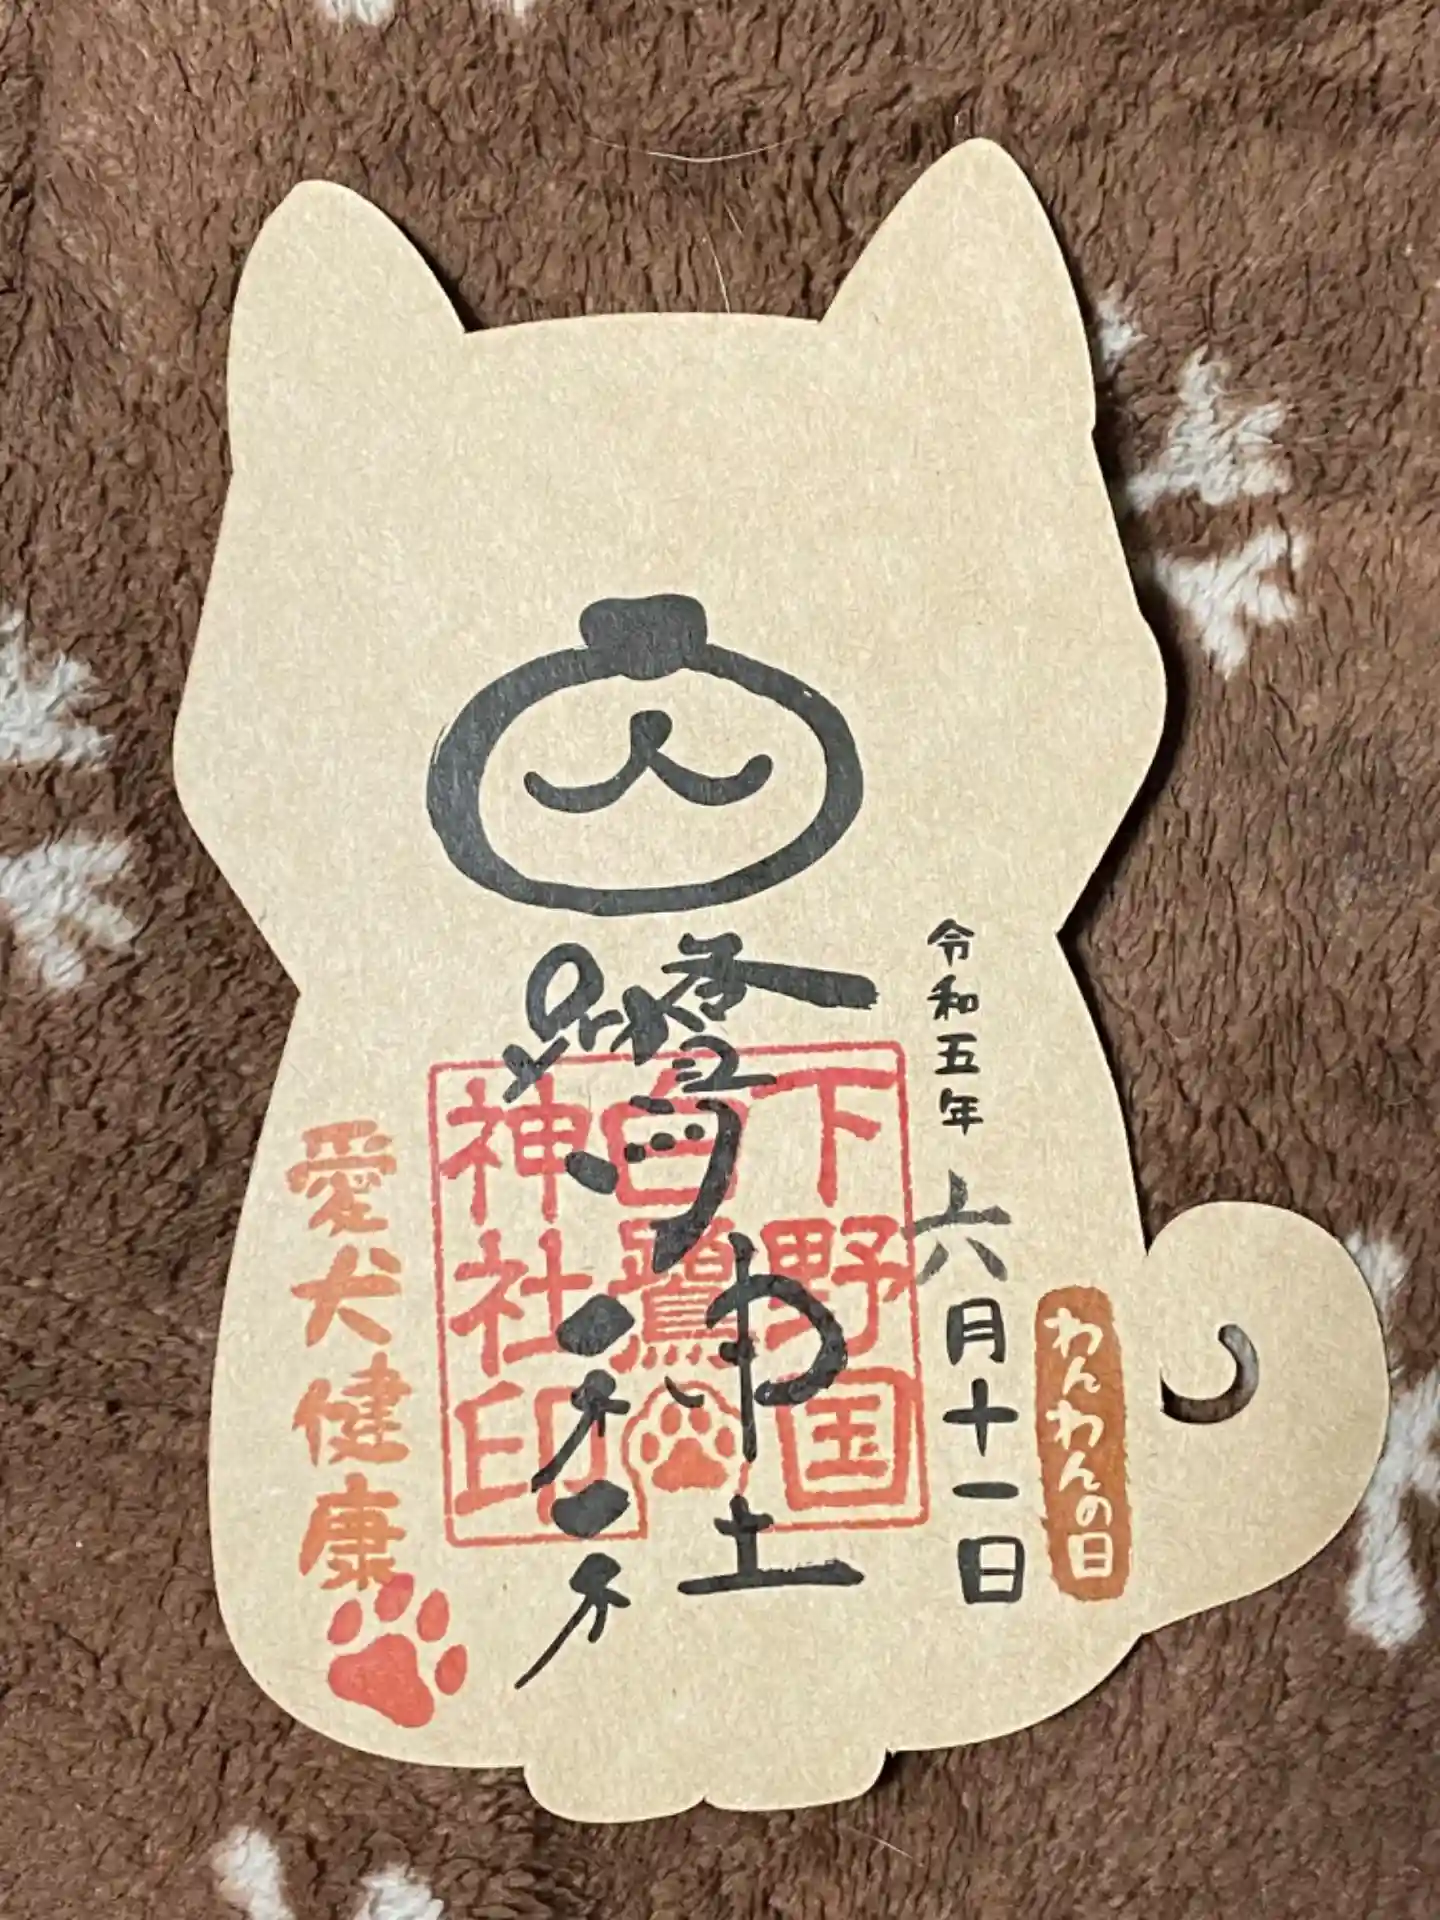 わんわんの日
令和五年六月十一日
白鷺神社
下野国
白鷺
神社印
愛犬健康